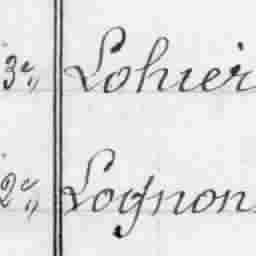 3e,, Lohier
2e,, Lognon